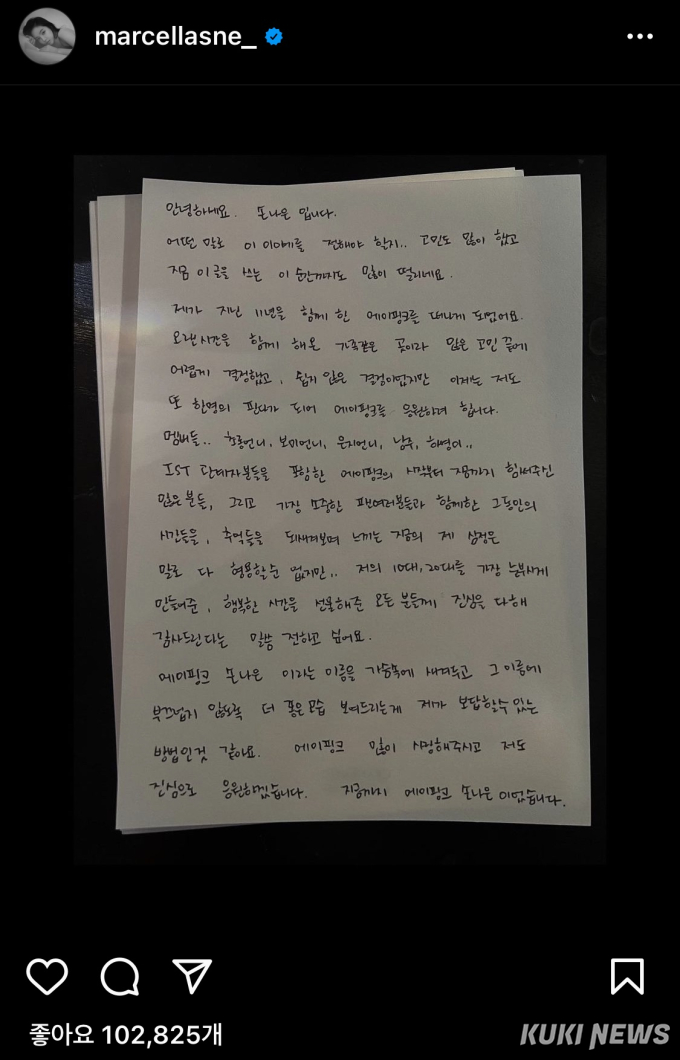 marcellasne_
안녕하세요. 손나은 입니다.
어떤 말로 이 이야기를 전해야 할지.. 고민도 많이 했고
지금 이 글을 쓰는 이 순간까지도 많이 떨리네요.
제가 지난 11년을 함께 한 에이핑크를 떠나게 되었어요.
오랜시간을 함께 해온 가족같은 곳이라 많은 고민 끝에
어렵게 결정했고, 쉽지 않은 결정이었지만 이제는 저도
또 한명의 판다가 되어 에이핑크를 응원하려 합니다.
멤버들.. 초롱언니, 보미언니, 은지언니, 남주, 하영이..
IST 관계자분들을 포함한 에이핑크의 시작부터 지금까지 힘써주신
많은 분들, 그리고 가장 소중한 팬여러분들과 함께한 그동안의
시간들을, 추억들을 되새겨보며 느끼는 지금의 제 심정은
말로 다 형용할순 없지만.. 저의 10대, 20대를 가장 눈부시게
만들어준, 행복한 시간을 선물해준 모든 분들께 진심을 다해
감사드린다는 말씀 전하고 싶어요.
에이핑크 손나은 이라는 이름을 가슴속에 새겨두고 그 이름에
부끄럽지 않도록 더 좋은 모습 보여드리는게 제가 보답할수 있는
방법인것 같아요. 에이핑크 많이 사랑해주시고 저도
진심으로 응원하겠습니다. 지금까지 에이핑크 손나은 이었습니다.
좋아요 102,825개
KUKI NEWS